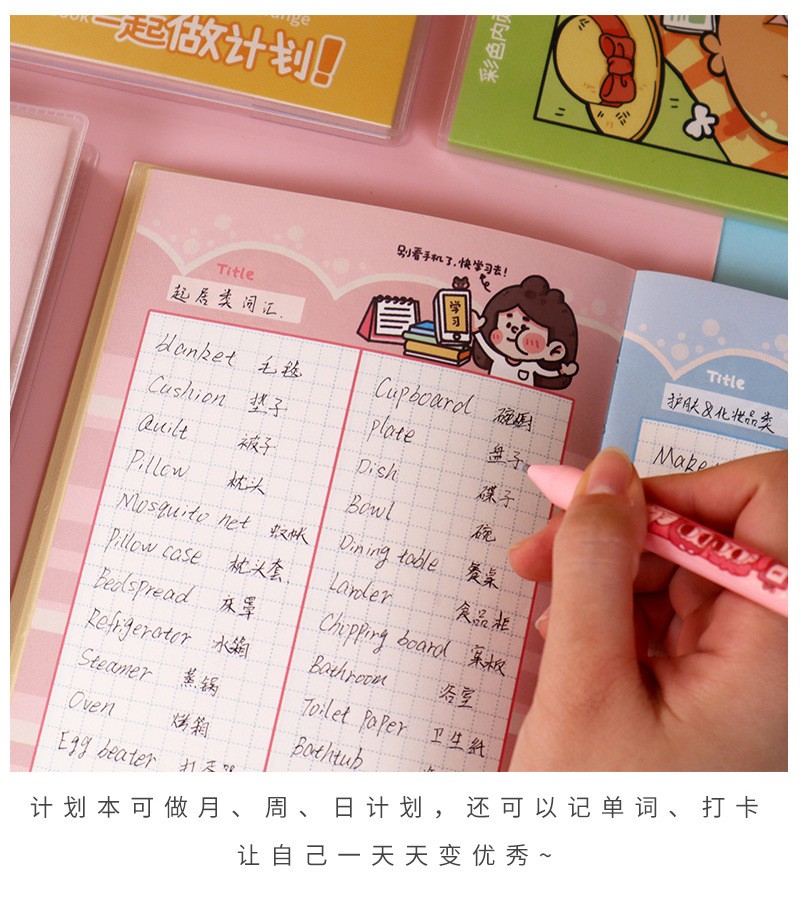 一起做计划!
彩色内页
别看手机了，快学习去!
学习
Title
起居类词汇.
blanket 毛毯
Cushion 垫子
Quilt 被子
Pillow 枕头
Mosquito net 蚊帐
Pillow case 枕头套
Bedspread 床罩
Refrigerator 冰箱
Steamer 蒸锅
Oven 烤箱
Egg beater
Cupboard 碗厨
plate 盘子
Dish 碟子
Bowl 碗
Dining table 餐桌
Larder 食品柜
Chopping board 案板
Bathroom 浴室
Toilet paper 卫生纸
Bathtub
Title
护肤&化妆品类
Make
计划本可做月、周、日计划，还可以记单词、打卡
让自己一天天变优秀~